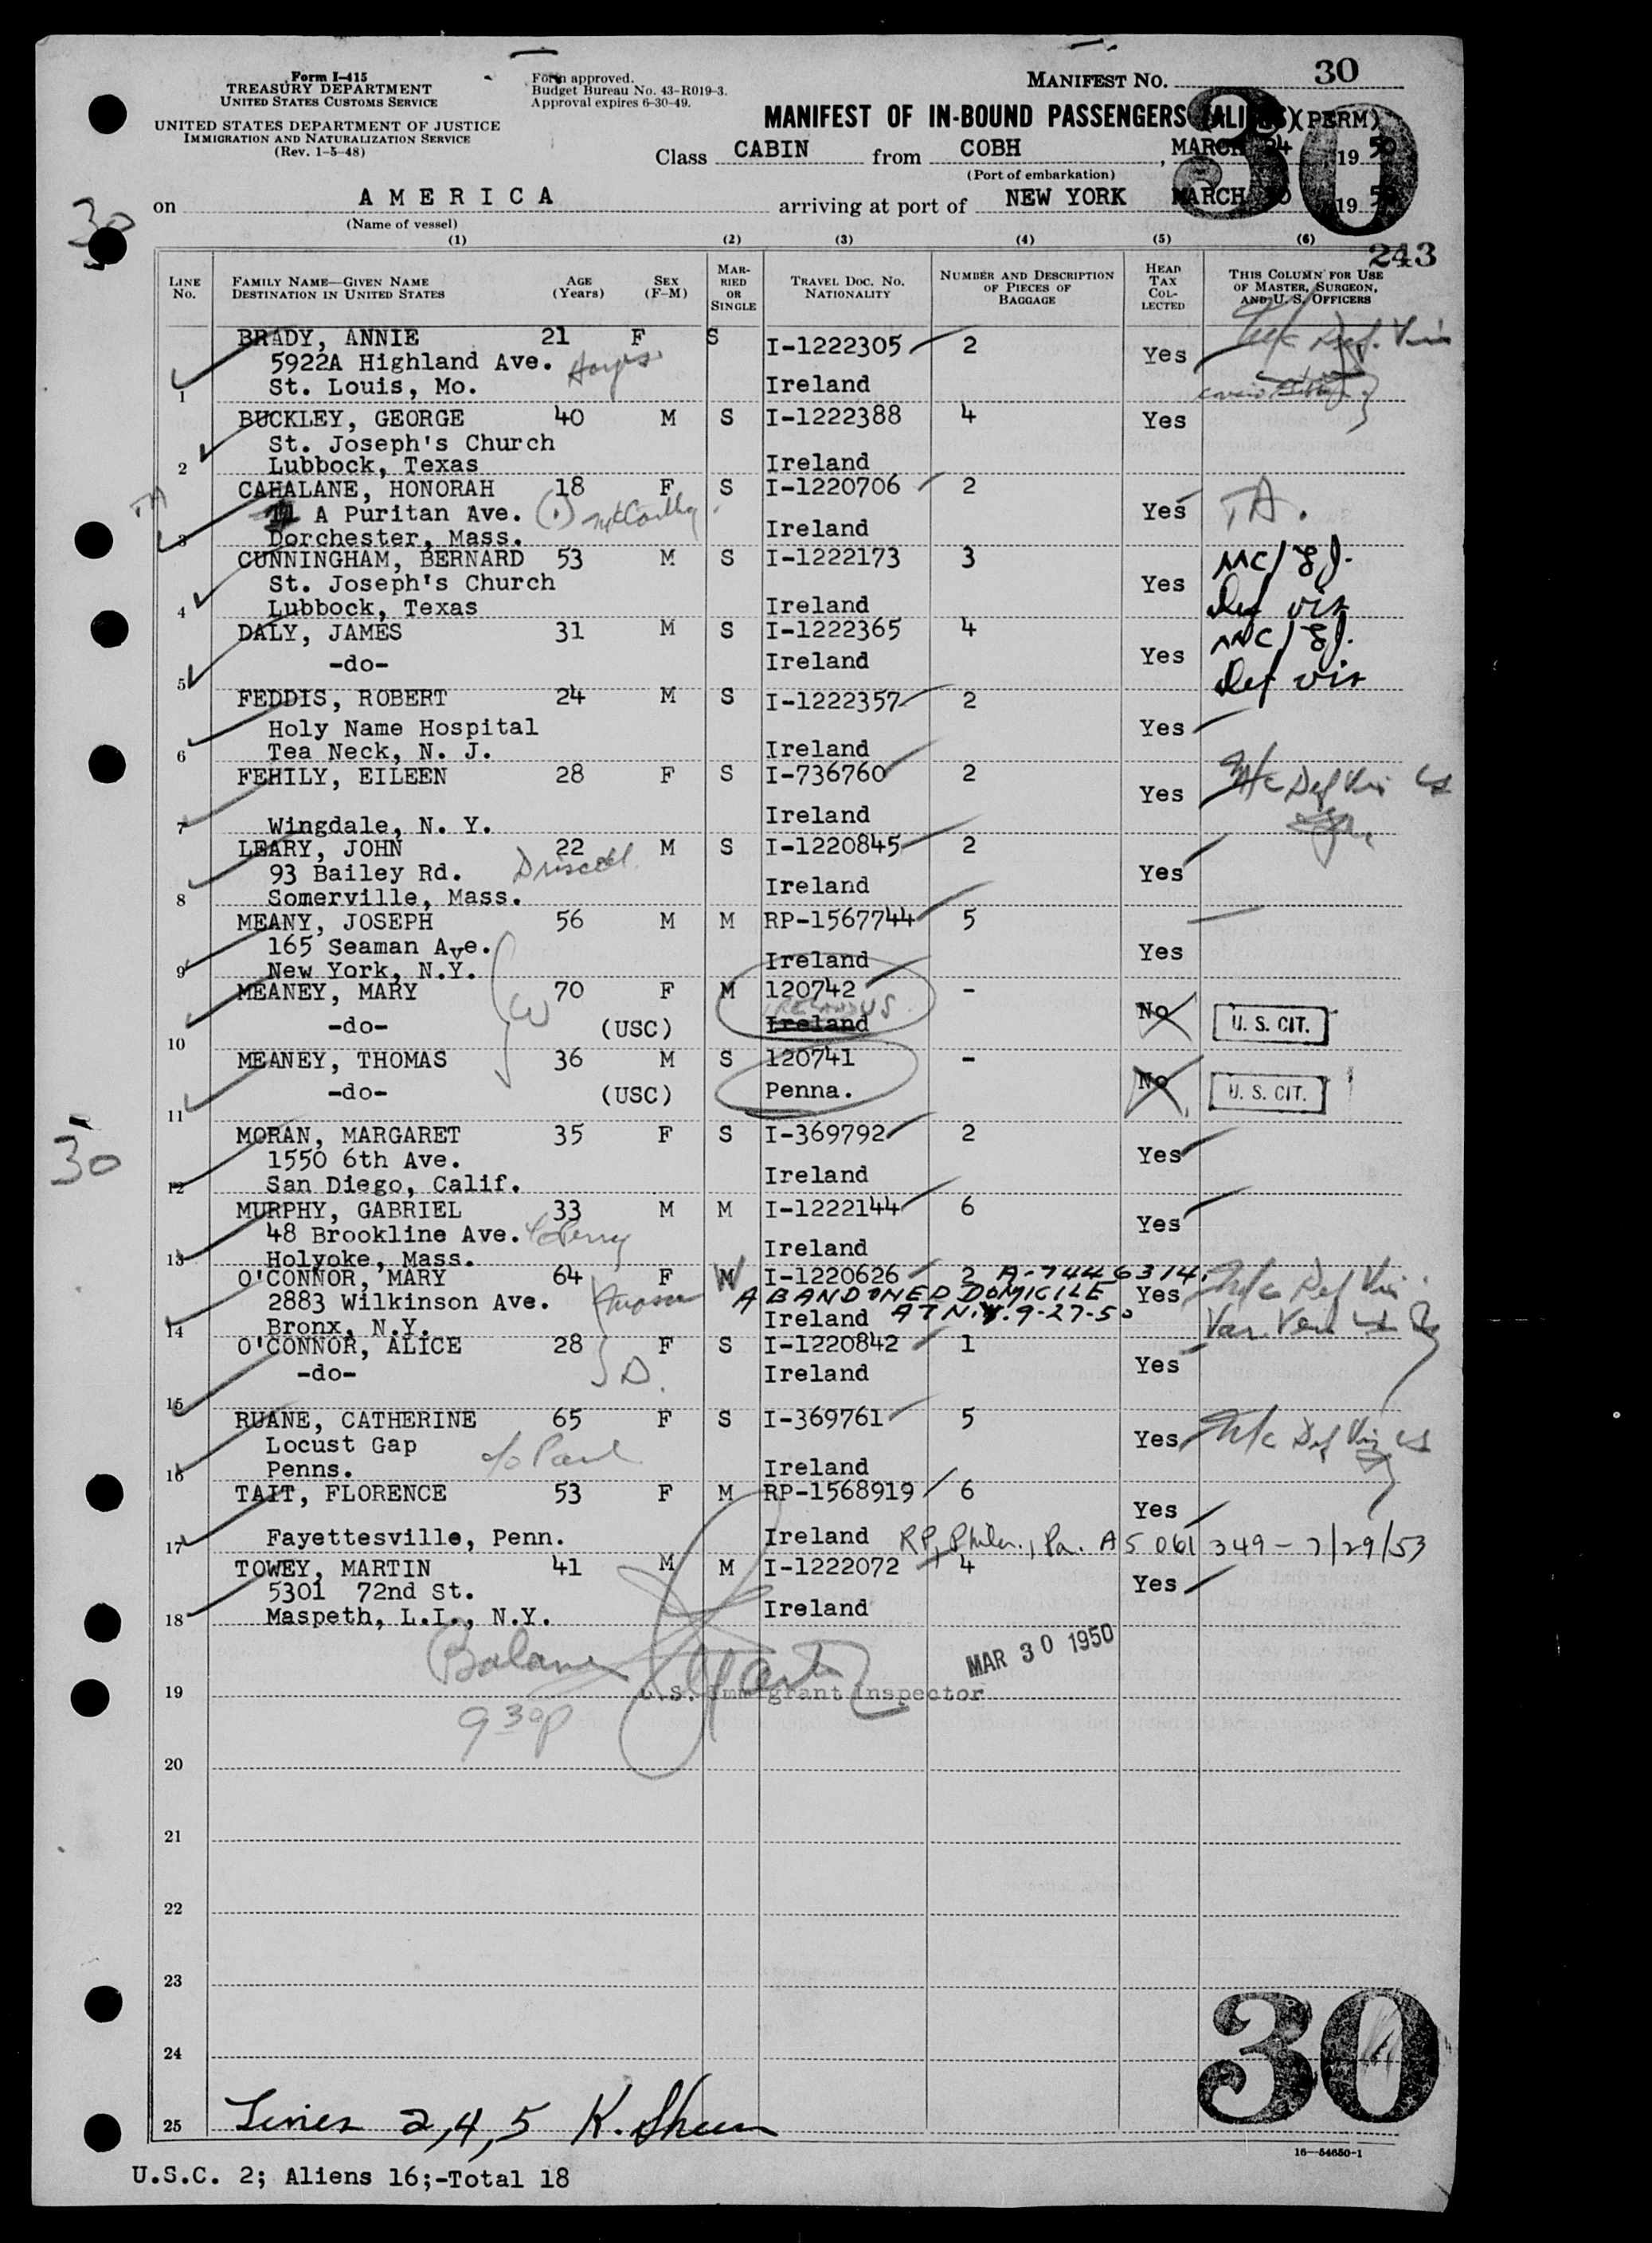 Form I-415
TREASURY DEPARTMENT
UNITED STATES CUSTOMS SERVICE
UNITED STATES DEPARTMENT OF JUSTICE
IMMIGRATION AND NATURALIZATION SERVICE
(Rev. 1-5-48)
Form approved.
Budget Bureau No. 43-R019-3.
Approval expires 6-30-49.
MANIFEST NO. 30
MANIFEST OF IN-BOUND PASSENGERS (ALIENS) (PERM)
30
Class CABIN from COBH, MARCH 24, 1950
(Port of embarkation)
on AMERICA arriving at port of NEW YORK MARCH 30 1950
(Name of vessel)
30
(1) (2) (3) (4) (5) (6)
243
LINE No. FAMILY NAME—GIVEN NAME DESTINATION IN UNITED STATES AGE (Years) SEX (F-M) MARRIED OR SINGLE TRAVEL DOC. NO. NATIONALITY NUMBER AND DESCRIPTION OF PIECES OF BAGGAGE HEAD TAX COLLECTED THIS COLUMN FOR USE OF MASTER, SURGEON, AND U. S. OFFICERS
BRADY, ANNIE 21 F S I-1222305 2 Yes
5922A Highland Ave. Hayes
1 St. Louis, Mo. Ireland
BUCKLEY, GEORGE 40 M S I-1222388 4 Yes
St. Joseph's Church
2 Lubbock, Texas Ireland
CAHALANE, HONORAH 18 F S I-1220706 2 Yes TA.
TA
A Puritan Ave. McCarthy
3 Dorchester, Mass. Ireland
CUNNINGHAM, BERNARD 53 M S I-1222173 3 Yes
St. Joseph's Church
4 Lubbock, Texas Ireland
DALY, JAMES 31 M S I-1222365 4 Yes
5 -do- Ireland
FEDDIS, ROBERT 24 M S I-1222357 2 Yes
Holy Name Hospital
6 Tea Neck, N. J. Ireland
FEHILY, EILEEN 28 F S I-736760 2 Yes
7 Wingdale, N. Y. Ireland
LEARY, JOHN 22 M S I-1220845 2 Yes
93 Bailey Rd. Driscoll
8 Somerville, Mass. Ireland
MEANY, JOSEPH 56 M M RP-1567744 5 Yes
165 Seaman Ave.
9 New York, N.Y. Ireland
MEANEY, MARY 70 F M 120742 - No U. S. CIT.
W
10 -do- (USC) Ireland
MEANEY, THOMAS 36 M S 120741 - No U. S. CIT.
11 -do- (USC) Penna.
30
MORAN, MARGARET 35 F S I-369792 2 Yes
1550 6th Ave.
12 San Diego, Calif. Ireland
MURPHY, GABRIEL 33 M M I-1222144 6 Yes
48 Brookline Ave.
13 Holyoke, Mass. Ireland
O'CONNOR, MARY 64 F M W I-1220626 2 A-7446314. Yes
2883 Wilkinson Ave. ABANDONED DOMICILE
14 Bronx, N.Y. Ireland AT N.Y. 9-27-50
O'CONNOR, ALICE 28 F S I-1220842 1 Yes
15 -do- D. Ireland
RUANE, CATHERINE 65 F S I-369761 5 Yes
Locust Gap c/o Paul
16 Penns. Ireland
TAIT, FLORENCE 53 F M RP-1568919 6 Yes
17 Fayettesville, Penn. Ireland RP, Phila., Pa. A5 061 349 - 7/29/53
TOWEY, MARTIN 41 M M I-1222072 4 Yes
5301 72nd St.
18 Maspeth, L.I., N.Y. Ireland
Balance
MAR 30 1950
19 U.S. Immigrant Inspector
930p
20
21
22
23
24
30
25 Lines 2,4,5 K. Sheen
16—54650-1
U.S.C. 2; Aliens 16;-Total 18